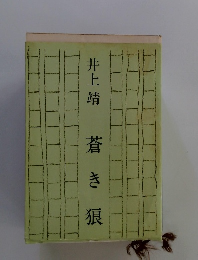 井上靖
蒼き狼